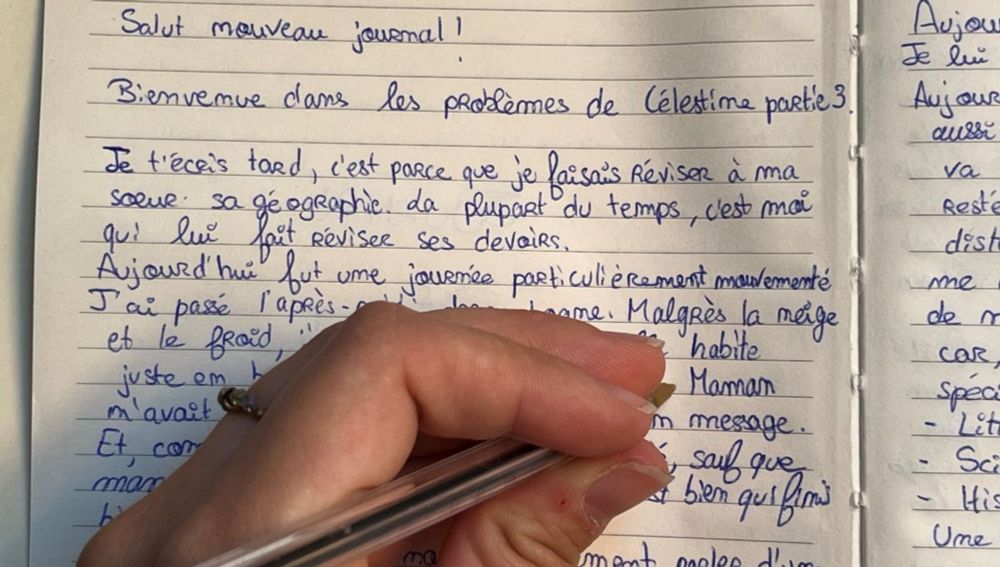 Salut nouveau journal !
Bienvenue dans les problèmes de Célestine partie 3.
Je t'écris tard, c'est parce que je faisais réviser à ma
soeur sa géographie. La plupart du temps, c'est moi
qui lui fait réviser ses devoirs.
Aujourd'hui fut une journée particulièrement mouvementé
J'ai passé l'après- Malgrès la neige
et le froid, habite
juste en Maman
m'avait message.
Et, com sauf que
bien qui finis
ment parler d'un
Aujou
Je lui
Aujour
aussi
va
resté
dist
me
de m
car,
spéci
- Lit
- Sci
- His
Une